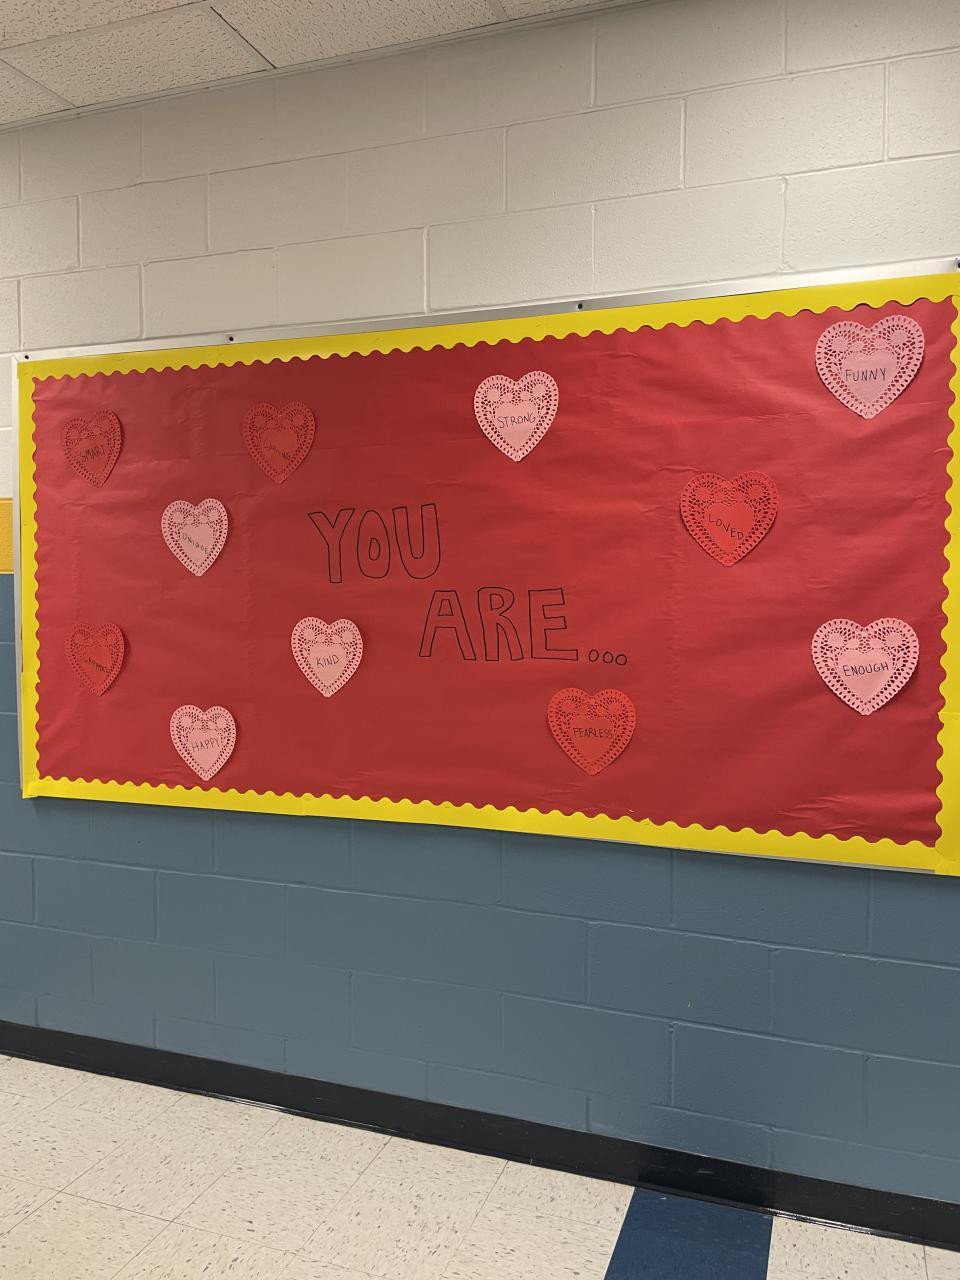 YOU
ARE...
SMART
STRONG
FUNNY
UNIQUE
LOVED
KIND
ENOUGH
HAPPY
FEARLESS